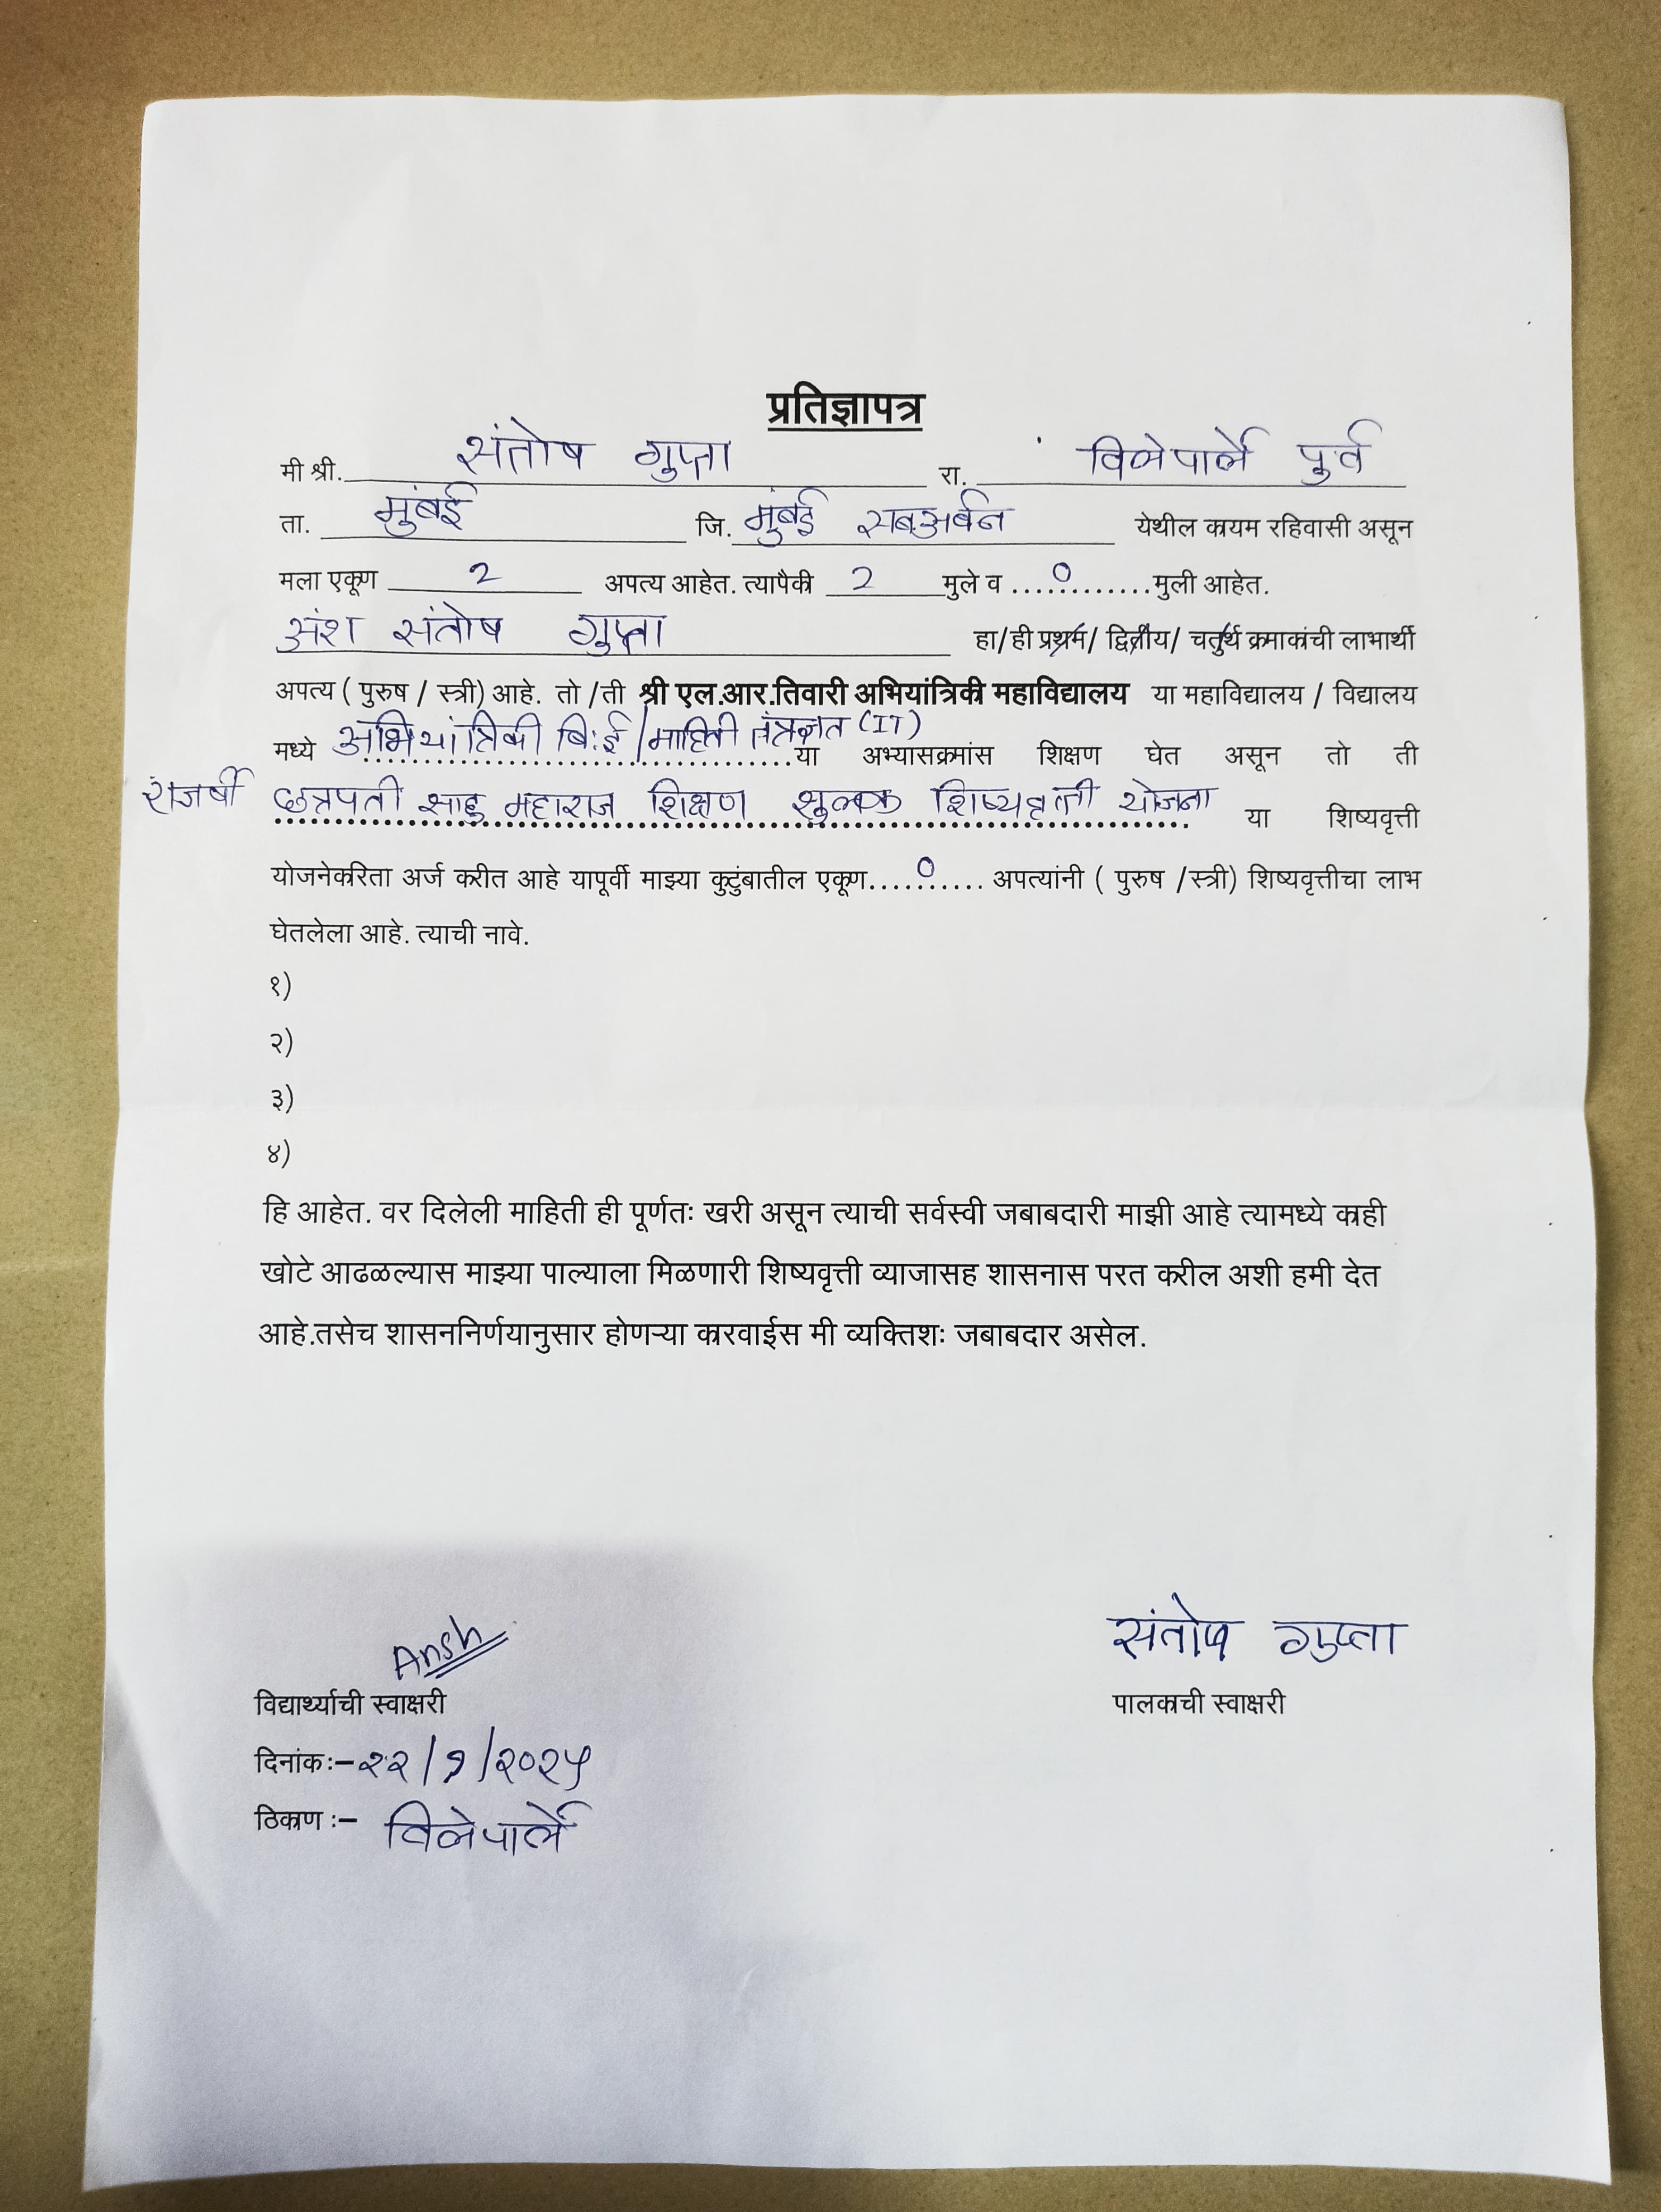 प्रतिज्ञापत्र
मी श्री. संतोष गुप्ता रा. विलेपार्ले पुर्व
ता. मुंबई जि. मुंबई सबअर्बन येथील कायम रहिवासी असून
मला एकूण 2 अपत्य आहेत. त्यापैकी 2 मुले व ....0........मुली आहेत.
अंश संतोष गुप्ता हा/ही प्रथम/ द्वितीय/ चतुर्थ क्रमाकांची लाभार्थी
अपत्य ( पुरुष / स्त्री) आहे. तो /ती श्री एल.आर.तिवारी अभियांत्रिकी महाविद्यालय या महाविद्यालय / विद्यालय
मध्ये अभियांत्रिकी बि:ई/माहिती तंत्रज्ञात (IT) या अभ्यासक्रमांस शिक्षण घेत असून तो ती
राजर्षी छत्रपती साहु महाराज शिक्षण शुल्क शिष्यवृत्ती योजना या शिष्यवृत्ती
योजनेकरिता अर्ज करीत आहे यापूर्वी माझ्या कुटुंबातील एकूण.....0..... अपत्यांनी ( पुरुष /स्त्री) शिष्यवृत्तीचा लाभ
घेतलेला आहे. त्याची नावे.
१)
२)
३)
४)
हि आहेत. वर दिलेली माहिती ही पूर्णतः खरी असून त्याची सर्वस्वी जबाबदारी माझी आहे त्यामध्ये काही
खोटे आढळल्यास माझ्या पाल्याला मिळणारी शिष्यवृत्ती व्याजासह शासनास परत करील अशी हमी देत
आहे.तसेच शासननिर्णयानुसार होणऱ्या कारवाईस मी व्यक्तिशः जबाबदार असेल.
Ansh संतोष गुप्ता
विद्यार्थ्याची स्वाक्षरी पालकाची स्वाक्षरी
दिनांक:–२२/१/२०२५
ठिकाण :– विलेपार्ले